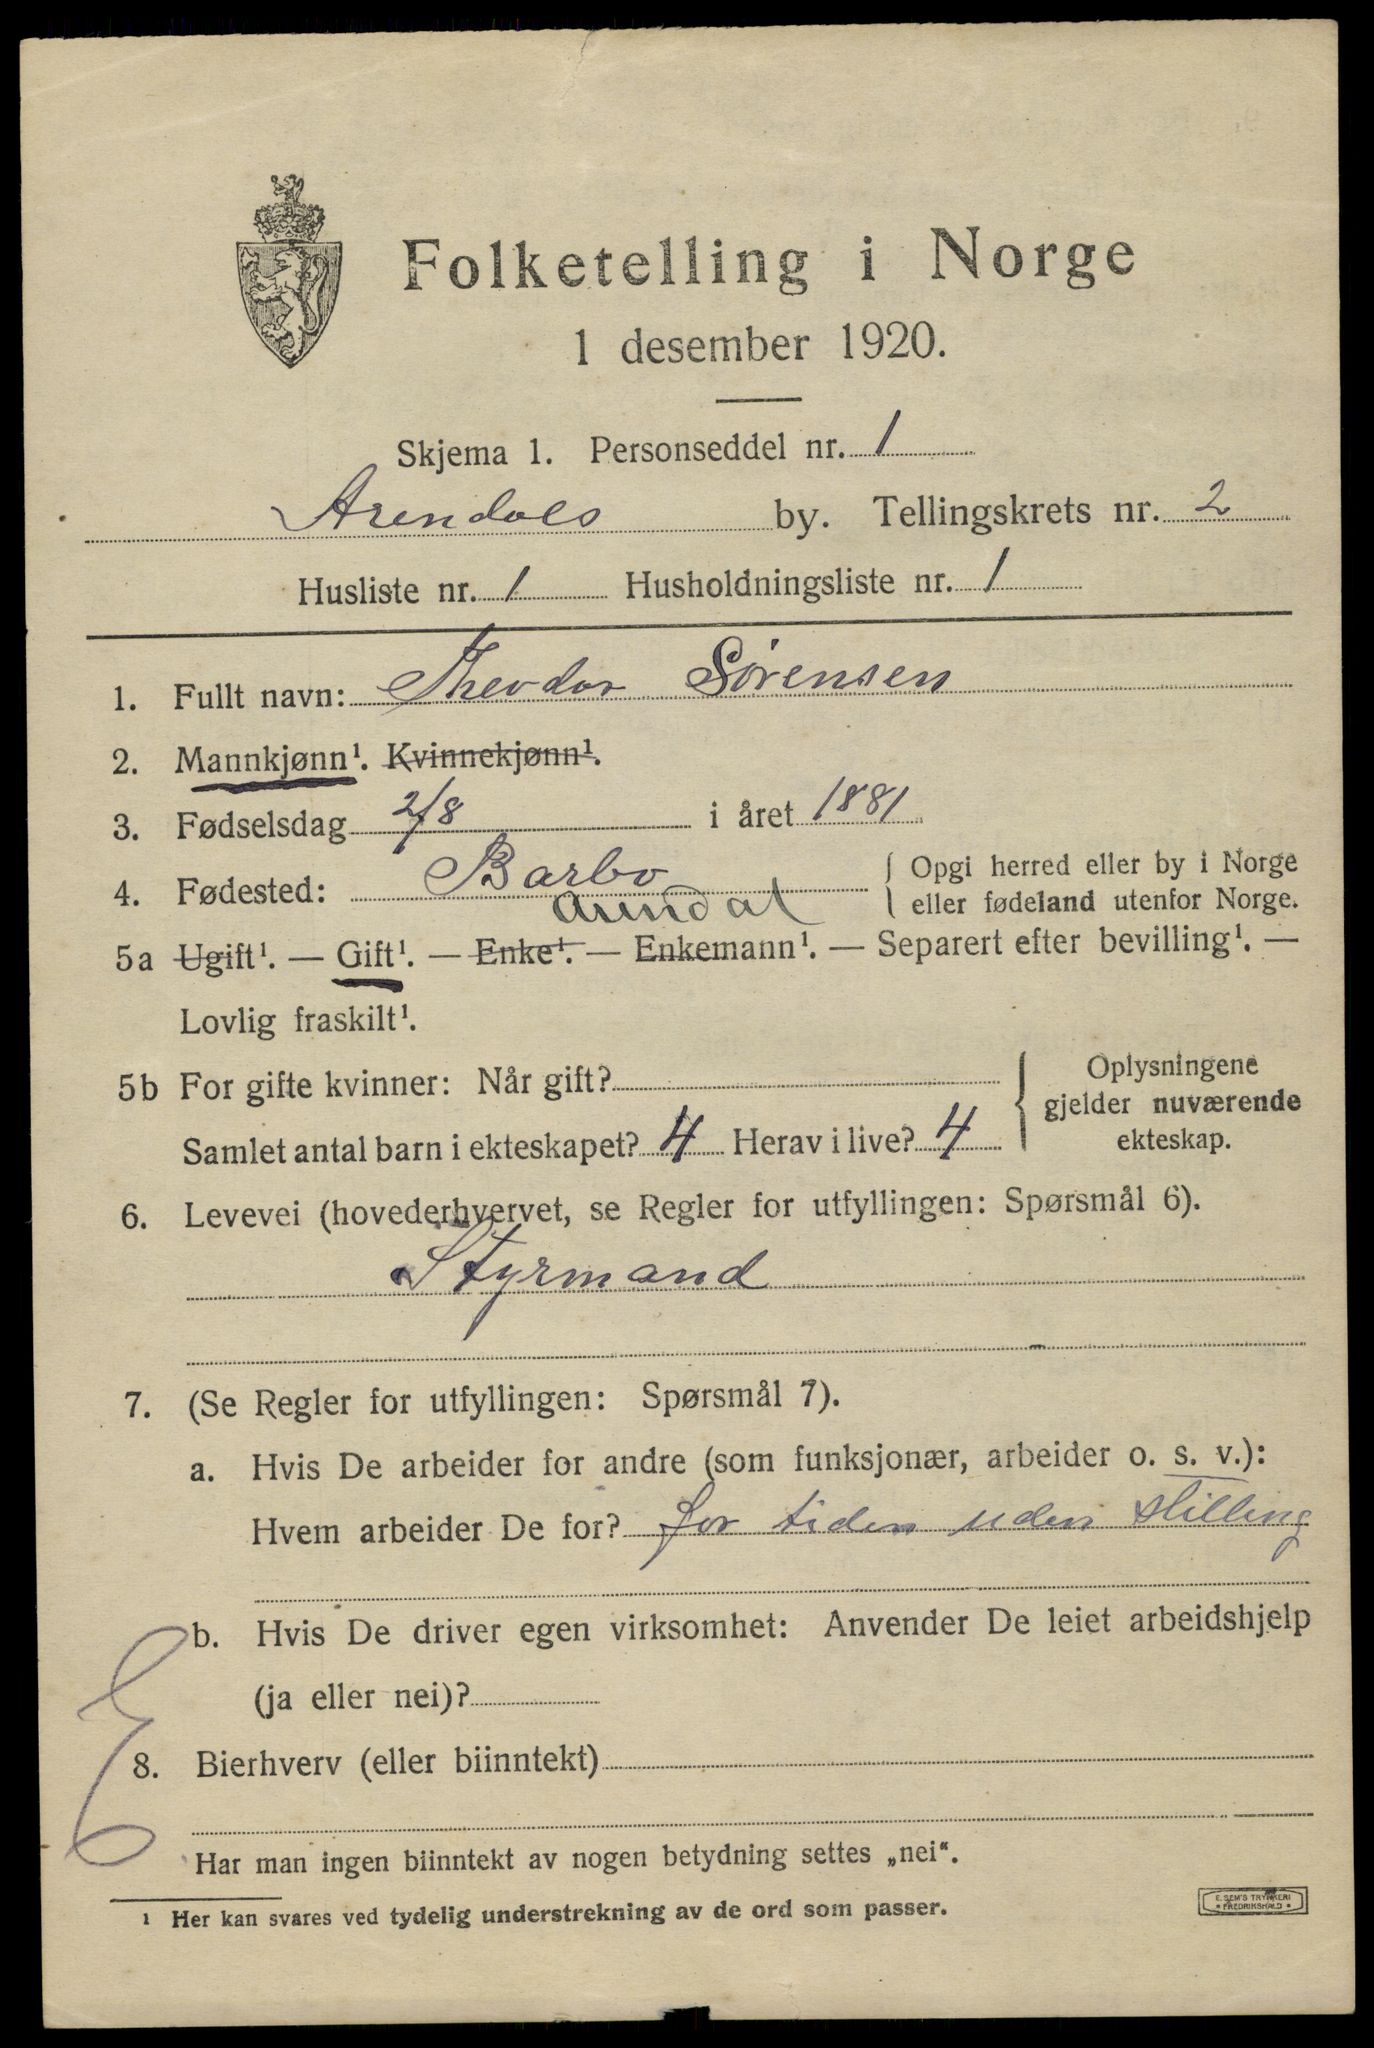 Folketelling i Norge
1 desember 1920.
Skjema 1. Personseddel nr. 1
Arendals by. Tellingskrets nr. 2
Husliste nr. 1 Husholdningsliste nr. 1
1. Fullt navn: Theodor Sörensen
2. Mannkjønn¹. Kvinnekjønn¹.
3. Fødselsdag 2/8 i året 1881
4. Fødested: Barbo { Opgi herred eller by i Norge
Arendal eller fødeland utenfor Norge.
5a Ugift¹. — Gift¹. — Enke¹. — Enkemann¹. — Separert efter bevilling¹. —
Lovlig fraskilt¹.
5b For gifte kvinner: Når gift? { Oplysningene
gjelder nuværende
Samlet antal barn i ekteskapet? 4 Herav i live? 4 ekteskap.
6. Levevei (hovederhvervet, se Regler for utfyllingen: Spørsmål 6).
Styrmand
7. (Se Regler for utfyllingen: Spørsmål 7).
a. Hvis De arbeider for andre (som funksjonær, arbeider o. s. v.):
Hvem arbeider De for? for tiden uden stilling
b. Hvis De driver egen virksomhet: Anvender De leiet arbeidshjelp
(ja eller nei)?
8. Bierhverv (eller biinntekt)
Har man ingen biinntekt av nogen betydning settes „nei“.
¹ Her kan svares ved tydelig understrekning av de ord som passer.
E. SEM'S TRYKKERI
* FREDRIKSHALD *